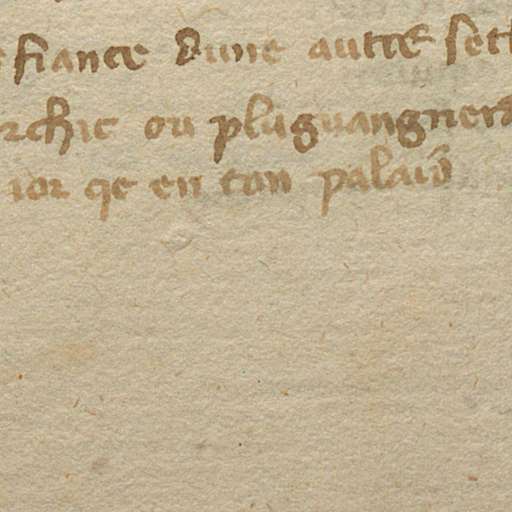 fiance dune autre set
rchic ou pluguangner
ior qe en ton palaio